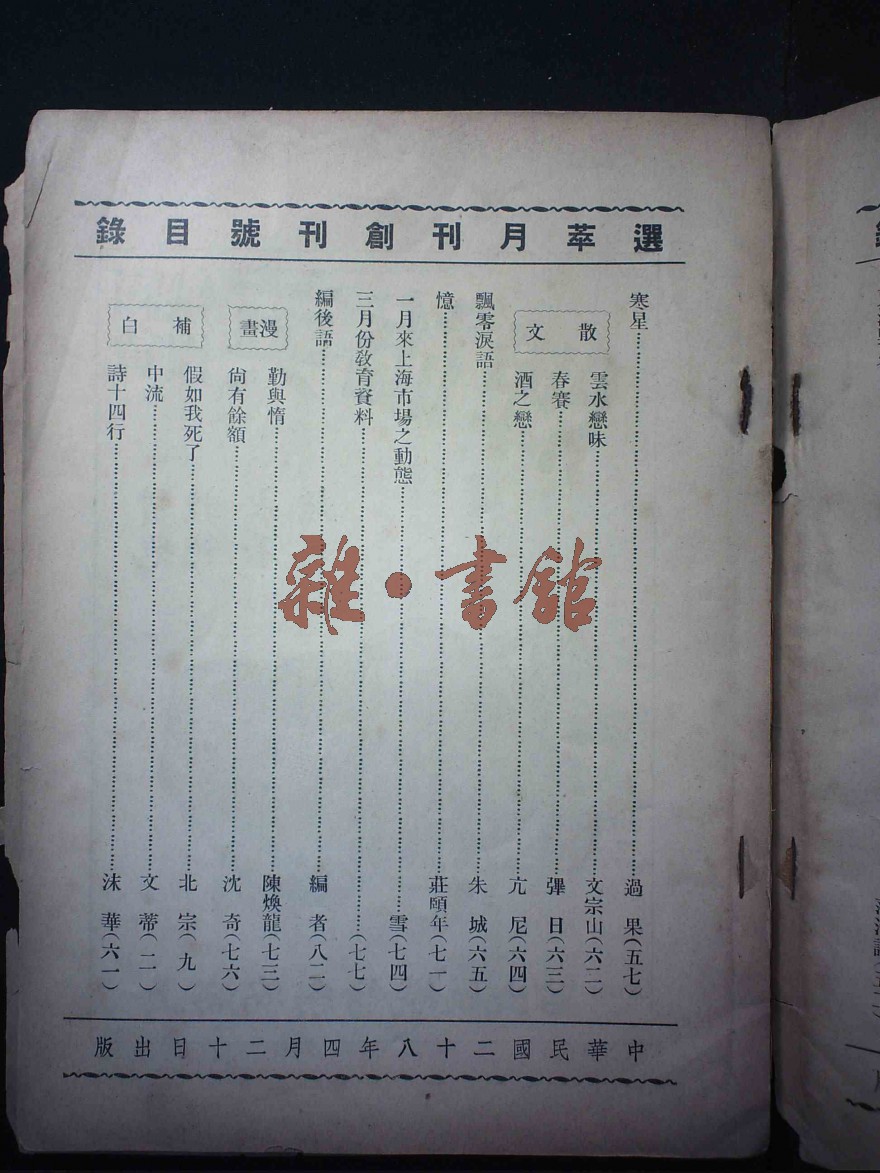 選萃月刊創刊號目錄
寒星……過果(五七)
散文
雲水戀味……文宗山(六二)
春賽……彈日(六三)
酒之戀……亢尼(六四)
飄零淚語……朱城(六五)
憶……莊頤年(七一)
一月來上海市場之動態……雪(七四)
三月份教育資料……(七七)
編後語……編者(八二)
漫畫
勤與惰……陳煥龍(七三)
尙有餘額……沈奇(七六)
補白
假如我死了……北宗(九)
中流……文蒂(二一)
詩十四行……沫華(六一)
中華民國二十八年四月二十日出版
雜・書館